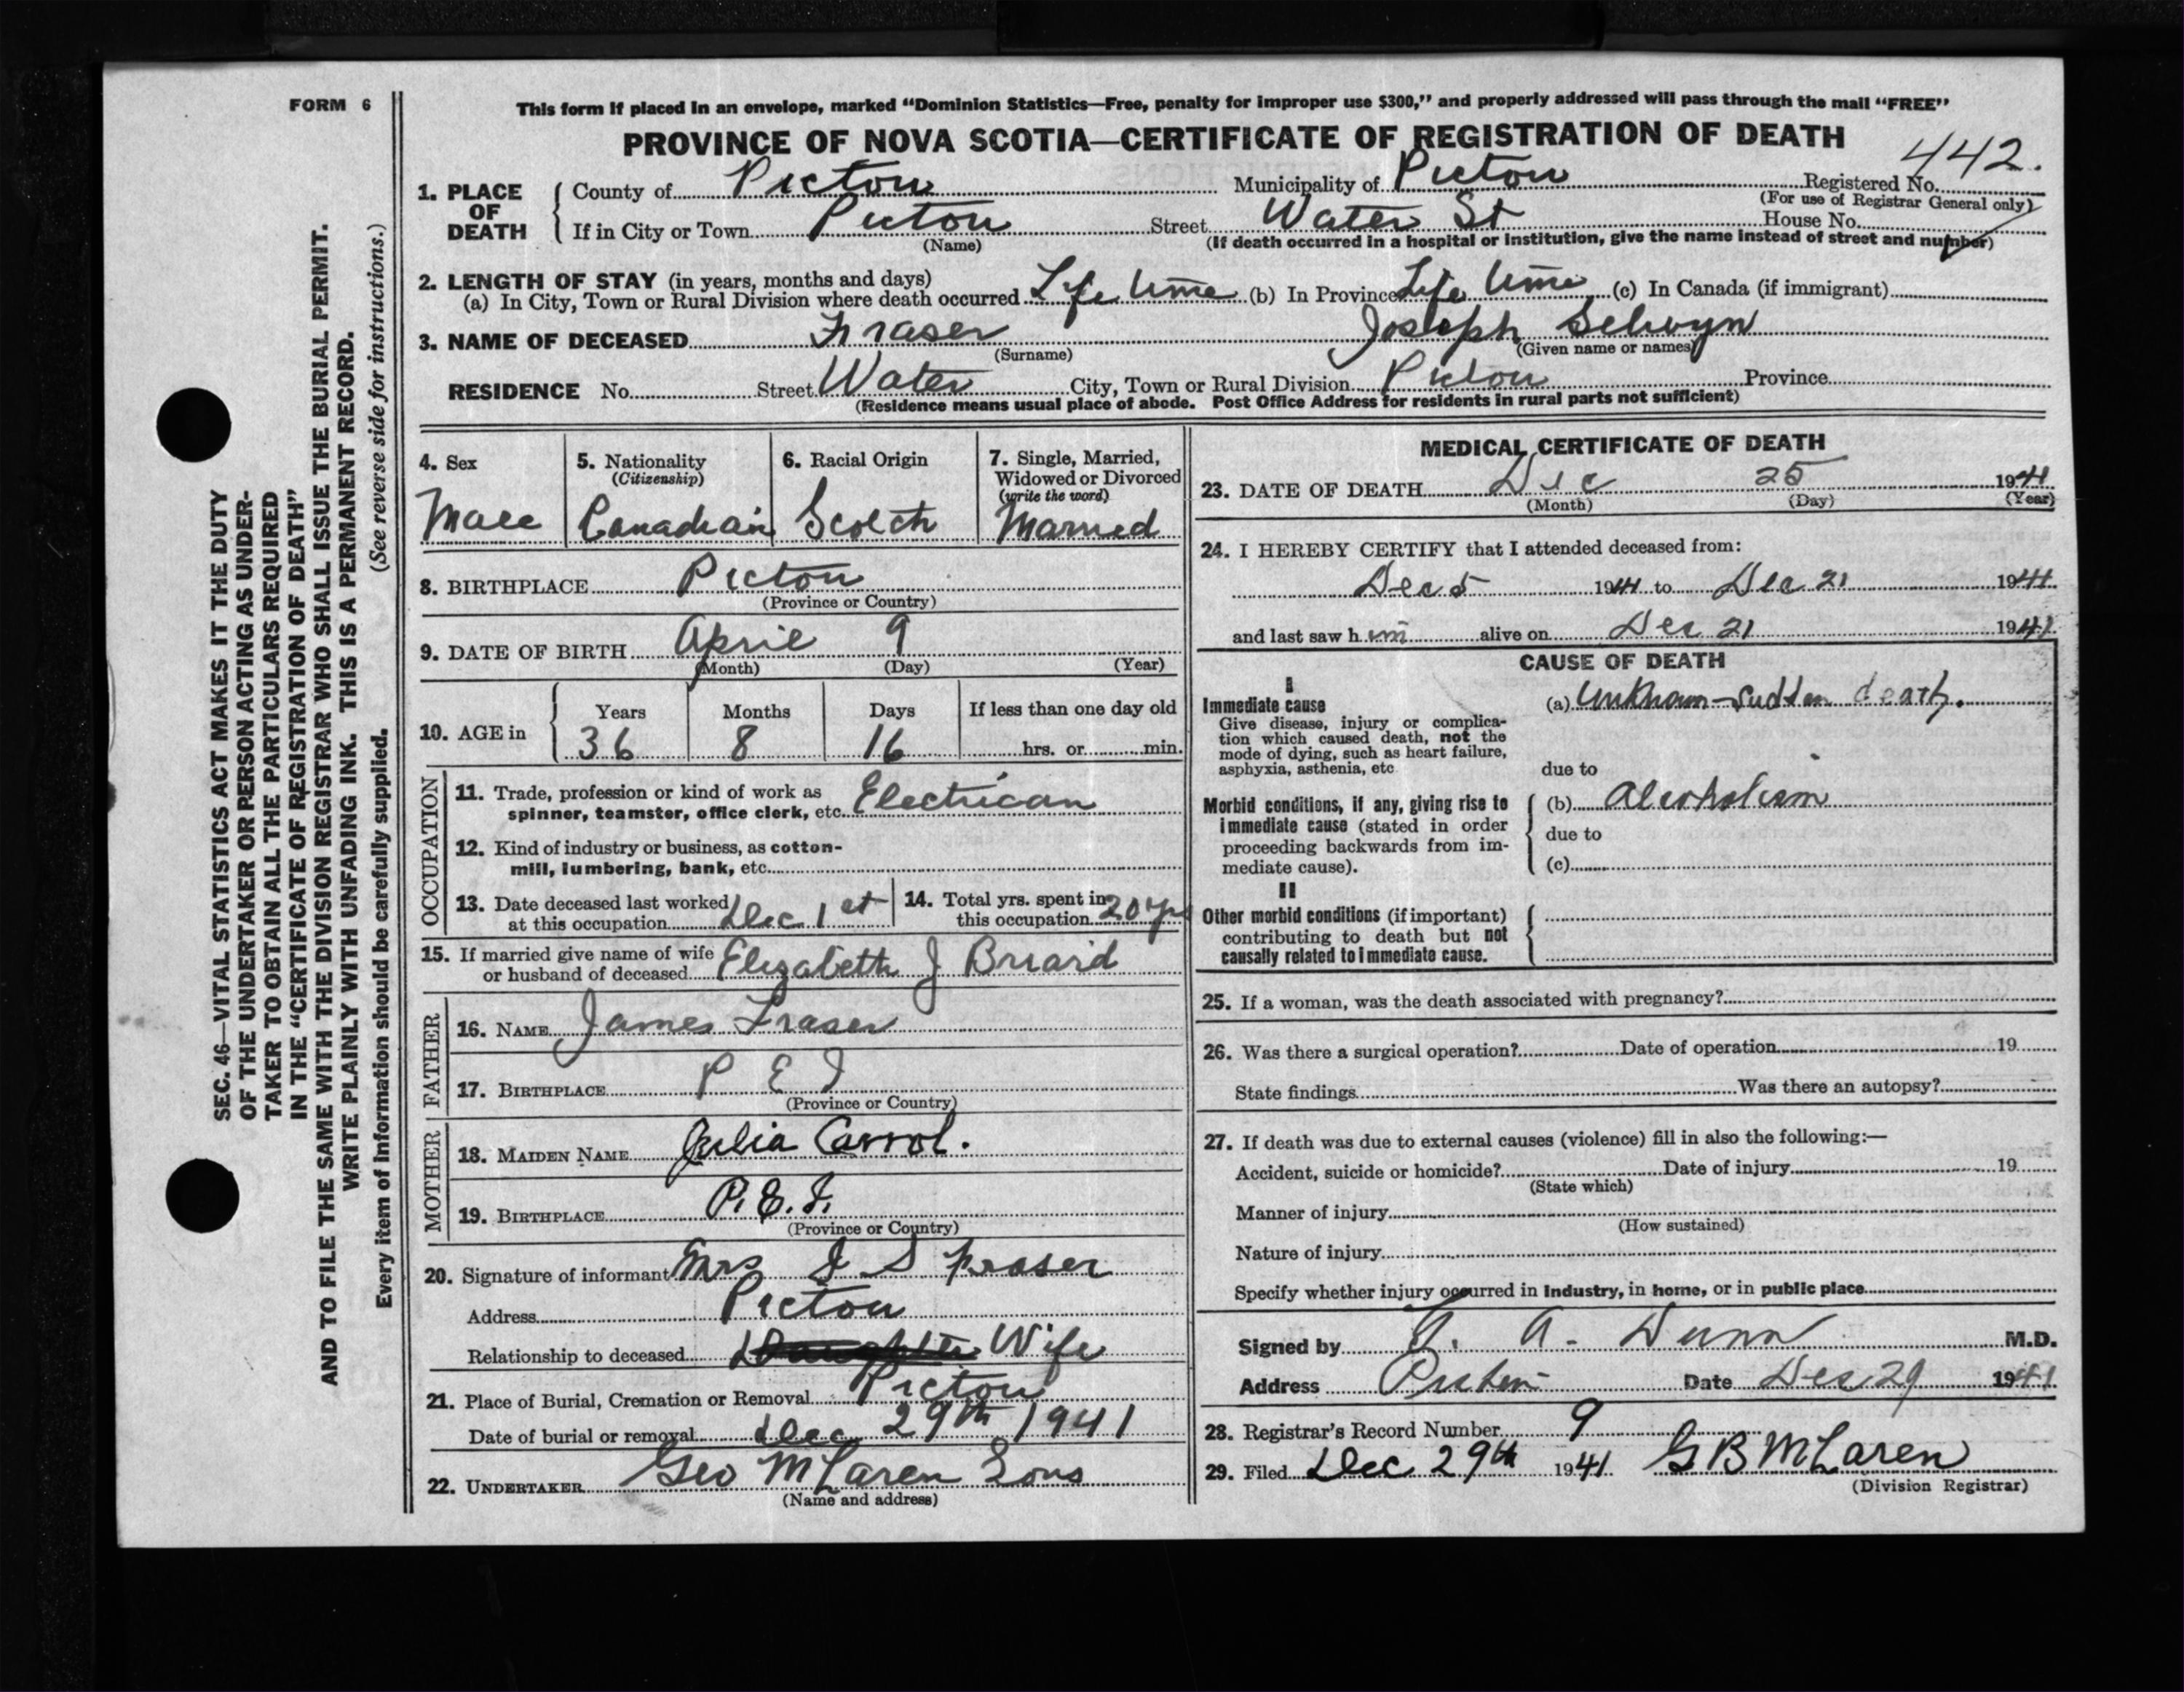 FORM 6
This form if placed in an envelope, marked “Dominion Statistics—Free, penalty for improper use $300,” and properly addressed will pass through the mail “FREE”
PROVINCE OF NOVA SCOTIA—CERTIFICATE OF REGISTRATION OF DEATH
442.
1. PLACE OF DEATH County of Picton Municipality of Picton Registered No.
(For use of Registrar General only)
If in City or Town Picton Street Water St House No.
(Name) (If death occurred in a hospital or institution, give the name instead of street and number)
2. LENGTH OF STAY (in years, months and days)
(a) In City, Town or Rural Division where death occurred Life time (b) In Province Life time (c) In Canada (if immigrant)
3. NAME OF DECEASED Fraser Joseph Selwyn
(Surname) (Given name or names)
RESIDENCE No. Street Water City, Town or Rural Division Picton Province
(Residence means usual place of abode. Post Office Address for residents in rural parts not sufficient)
4. Sex Male
5. Nationality (Citizenship) Canadian
6. Racial Origin Scotch
7. Single, Married, Widowed or Divorced (write the word) Married
8. BIRTHPLACE Picton
(Province or Country)
9. DATE OF BIRTH April 9
(Month) (Day) (Year)
10. AGE in Years Months Days If less than one day old
36 8 16 hrs. or min.
OCCUPATION
11. Trade, profession or kind of work as
spinner, teamster, office clerk, etc. Electrican
12. Kind of industry or business, as cotton-
mill, lumbering, bank, etc.
13. Date deceased last worked
at this occupation Dec 1st
14. Total yrs. spent in
this occupation 20 yrs
15. If married give name of wife
or husband of deceased Elizabeth J Briard
FATHER
16. NAME James Fraser
17. BIRTHPLACE P E I
(Province or Country)
MOTHER
18. MAIDEN NAME Julia Carrol.
19. BIRTHPLACE P.E.I.
(Province or Country)
20. Signature of informant Mrs J S Fraser
Address Picton
Relationship to deceased Daughter Wife
21. Place of Burial, Cremation or Removal Picton
Date of burial or removal Dec 29th 1941
22. UNDERTAKER Geo McLaren Sons
(Name and address)
MEDICAL CERTIFICATE OF DEATH
23. DATE OF DEATH Dec 25 1941
(Month) (Day) (Year)
24. I HEREBY CERTIFY that I attended deceased from:
Dec 5 1941 to Dec 21 1941
and last saw him alive on Dec 21 1941
CAUSE OF DEATH
I
Immediate cause (a) Unknown – Sudden death.
Give disease, injury or complica-
tion which caused death, not the
mode of dying, such as heart failure,
asphyxia, asthenia, etc
due to
Morbid conditions, if any, giving rise to (b) Alcoholism
immediate cause (stated in order due to
proceeding backwards from im-
mediate cause). (c)
II
Other morbid conditions (if important)
contributing to death but not
causally related to immediate cause.
25. If a woman, was the death associated with pregnancy?
26. Was there a surgical operation? Date of operation 19
State findings Was there an autopsy?
27. If death was due to external causes (violence) fill in also the following:—
Accident, suicide or homicide? Date of injury 19
(State which)
Manner of injury
(How sustained)
Nature of injury
Specify whether injury occurred in industry, in home, or in public place
Signed by G. A. Dunn M.D.
Address Picton Date Dec 29 1941
28. Registrar's Record Number 9
29. Filed Dec 29th 1941 G B McLaren
(Division Registrar)
SEC. 46—VITAL STATISTICS ACT MAKES IT THE DUTY
OF THE UNDERTAKER OR PERSON ACTING AS UNDER-
TAKER TO OBTAIN ALL THE PARTICULARS REQUIRED
IN THE “CERTIFICATE OF REGISTRATION OF DEATH”
AND TO FILE THE SAME WITH THE DIVISION REGISTRAR WHO SHALL ISSUE THE BURIAL PERMIT.
WRITE PLAINLY WITH UNFADING INK. THIS IS A PERMANENT RECORD.
Every item of information should be carefully supplied. (See reverse side for instructions.)